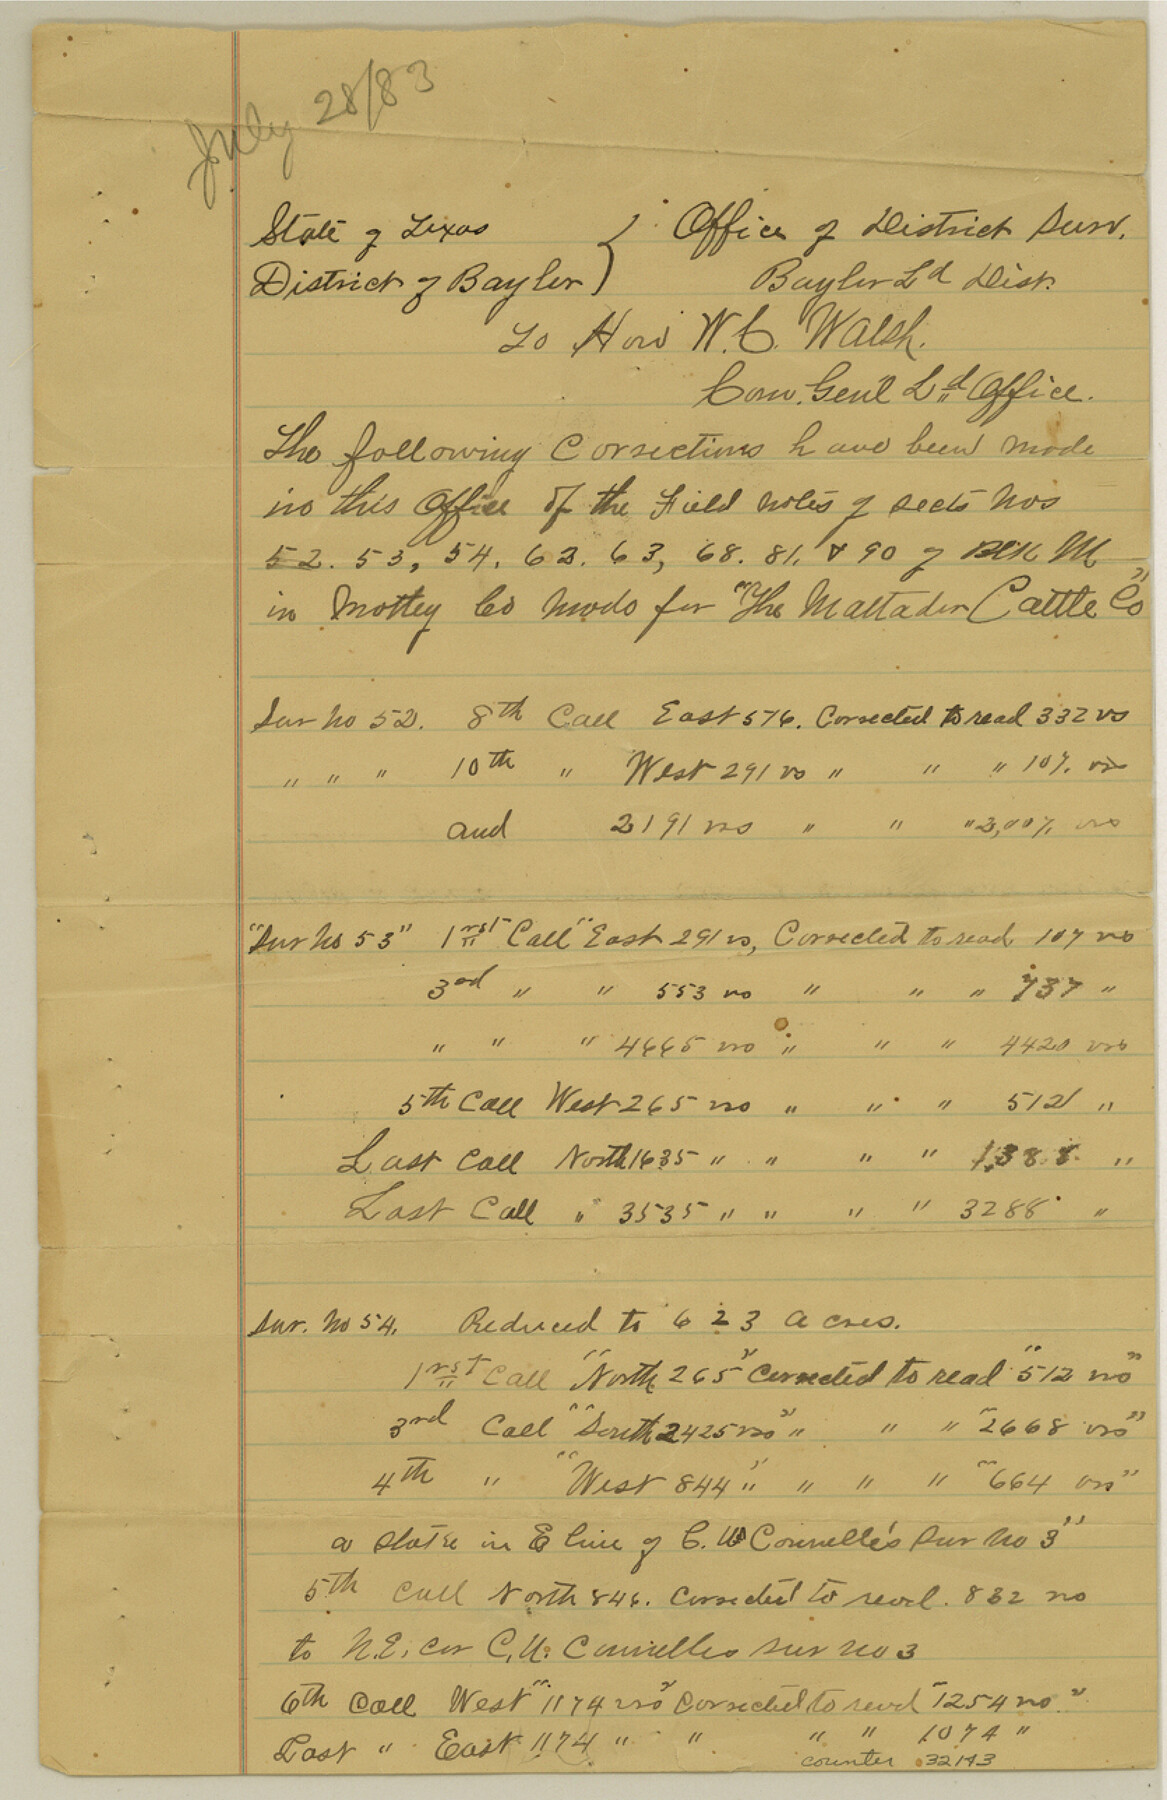 July 28/83
State of Texas } Office of District Surv.
District of Baylor } Baylor Ld Dist.
To Hon W.C. Walsh.
Com. Genl Ld Office.
The following Corrections have been made
in this Office of the Field notes of sects Nos
52. 53, 54. 62. 63, 68. 81. & 90 of Blk M
in Motley Co made for "The Mattador Cattle Co"
Sur No 52. 8th Call East 576. Corrected to read 332 vs
" " " 10th " West 291 vs " " " 107. vs
and 2191 vs " " " 2,007. vs
"Sur No 53" 1rst Call "East 291 vs, Corrected to read 107 vs
3rd " " 553 vs " " " 737 "
" " " 4665 vs " " " 4420 vrs
5th Call West 265 vs " " " 512 "
Last Call North 1635 " " " " 1,388 "
Last Call " 3535 " " " " 3288 "
Sur. No 54. Reduced to 623 acres.
1rst Call "North 265" Corrected to read "512 vs"
3rd Call "South 2425 vs" " " " "2668 vrs"
4th " "West 844" " " " " "664 vrs"
a stake in E line of C. U Connelle's Sur No 3"
5th Call North 846. Corrected to read. 832 vs
to N.E. cor C. U. Connelles sur no 3
6th Call West "1174 vrs" Corrected to read "1254 vs."
Last " East 1174 " " " " 1074 "
counter 32143